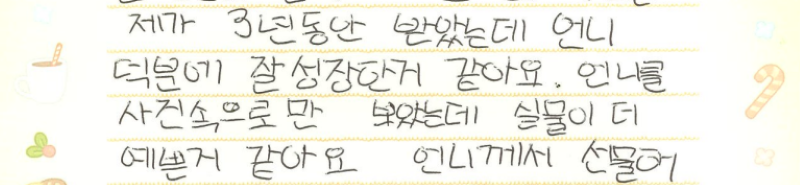 제가 3년동안 받았는데 언니
덕분에 잘성장한거 같아요. 언니를
사진속으로만 보았는데 실물이 더
예쁜거 같아요 언니께서 선물해